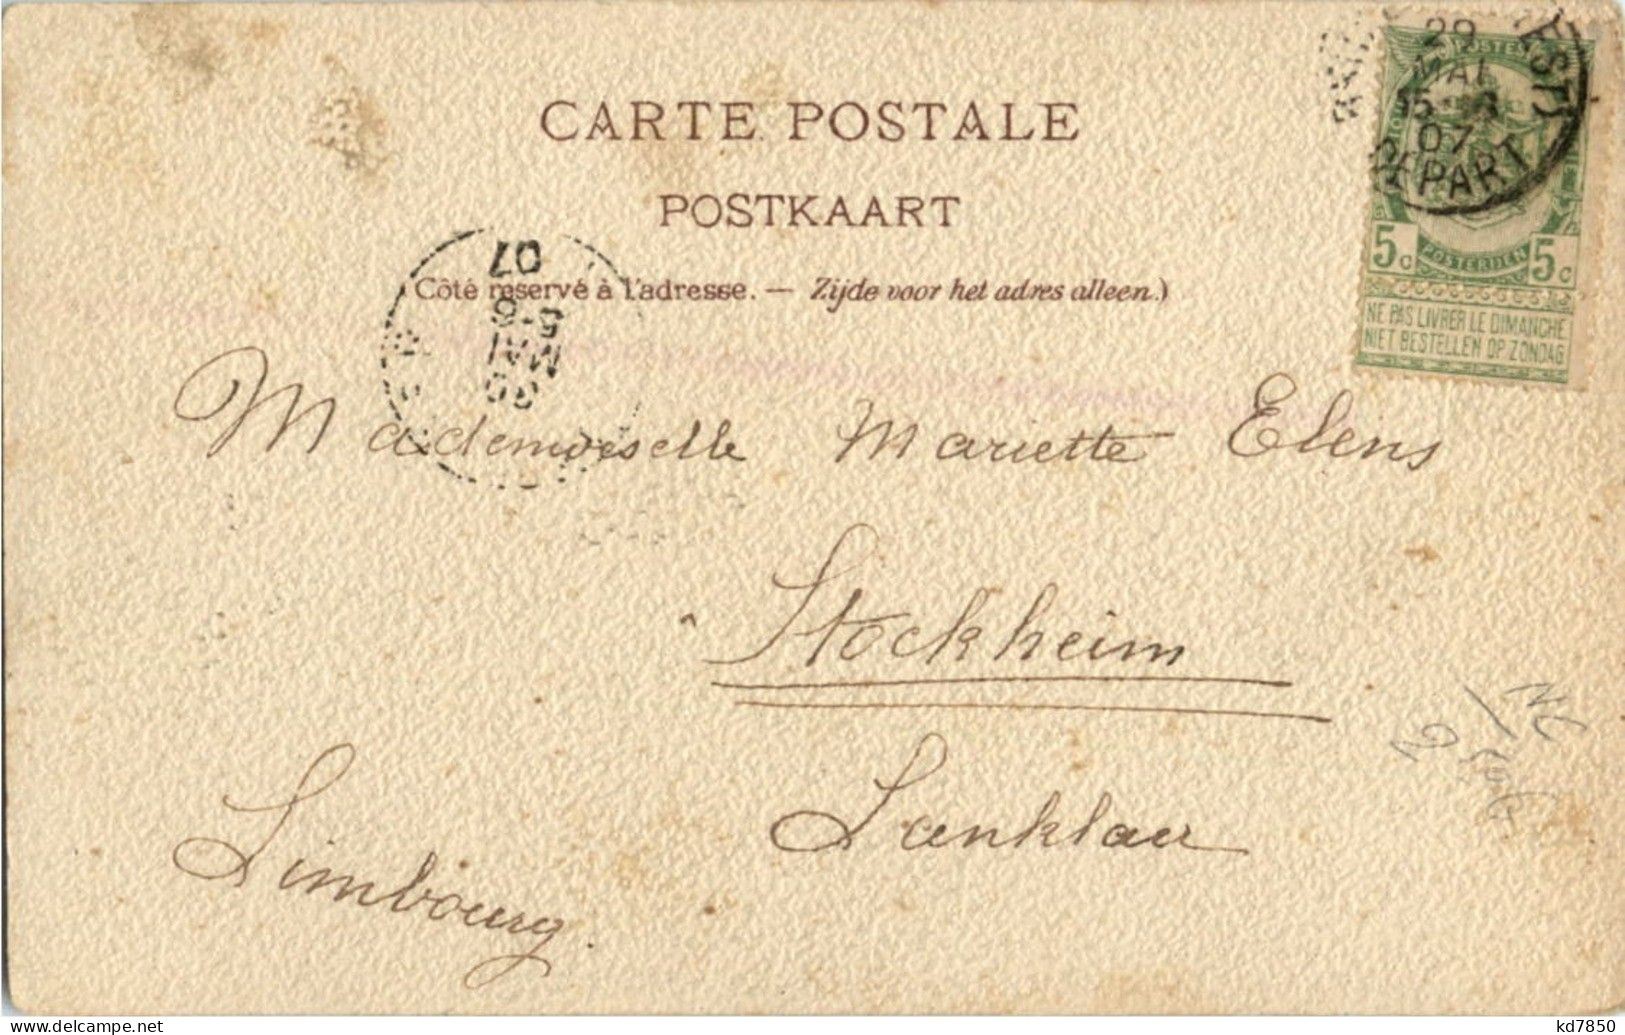 CARTE POSTALE
POSTKAART
(Côté reservé à l'adresse. — Zijde voor het adres alleen.)
29
MAI
07
DEPART
EST)
POSTES
5c POSTERIJEN 5c
NE PAS LIVRER LE DIMANCHE
NIET BESTELLEN OP ZONDAG
30
MAI
5-6
07
Mademoiselle Mariette Elens
Stockheim
Lanklaer
Limbourg.
delcampe.net
kd7850